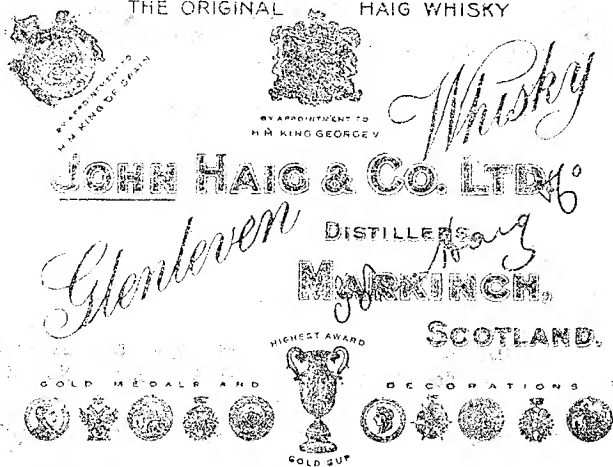 THE ORIGINAL HAIG WHISKY
BY APPOINTMENT TO
H M KING OF SPAIN
BY APPOINTMENT TO
H M KING GEORGE V
Whisky
JOHN HAIG & CO. LTD.
Glenleven
DISTILLERS
MARKINCH,
SCOTLAND.
HIGHEST AWARD
GOLD MEDALS AND DECORATIONS
GOLD CUP